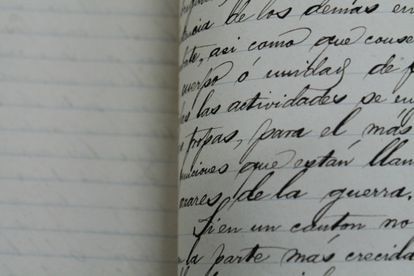 de los demás en
así como que conse
cuerpo ó unidad de
las actividades se
tropas, para el más
que están llam
de la guerra.
Si en un cantón no
la parte más crecida